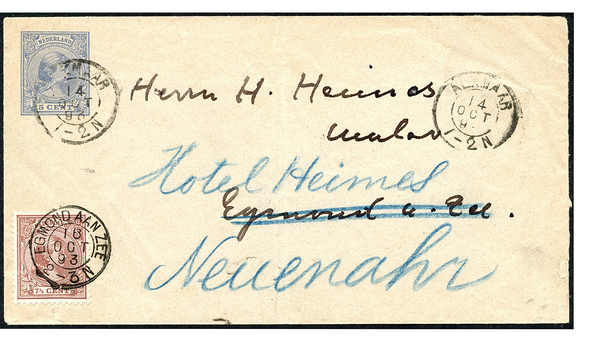 NEDERLAND
5 CENT
ALKMAAR
14
OCT
93
1-2N
ALKMAAR
14
OCT
1-2N
Herrn H. Heimes
Maler
Hotel Heimes
Egmond a. Zee.
Neuenahr
EGMOND AAN ZEE
16
OCT
93
N
7½ CENT